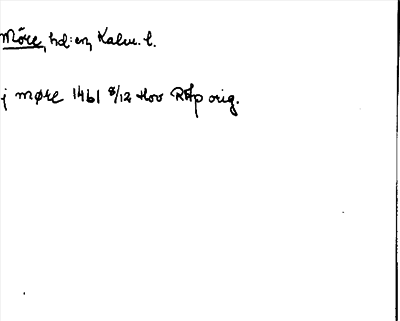 Möre, hd:en, Kalm. l.
j møre 1461 8/12 Hov RAp orig.